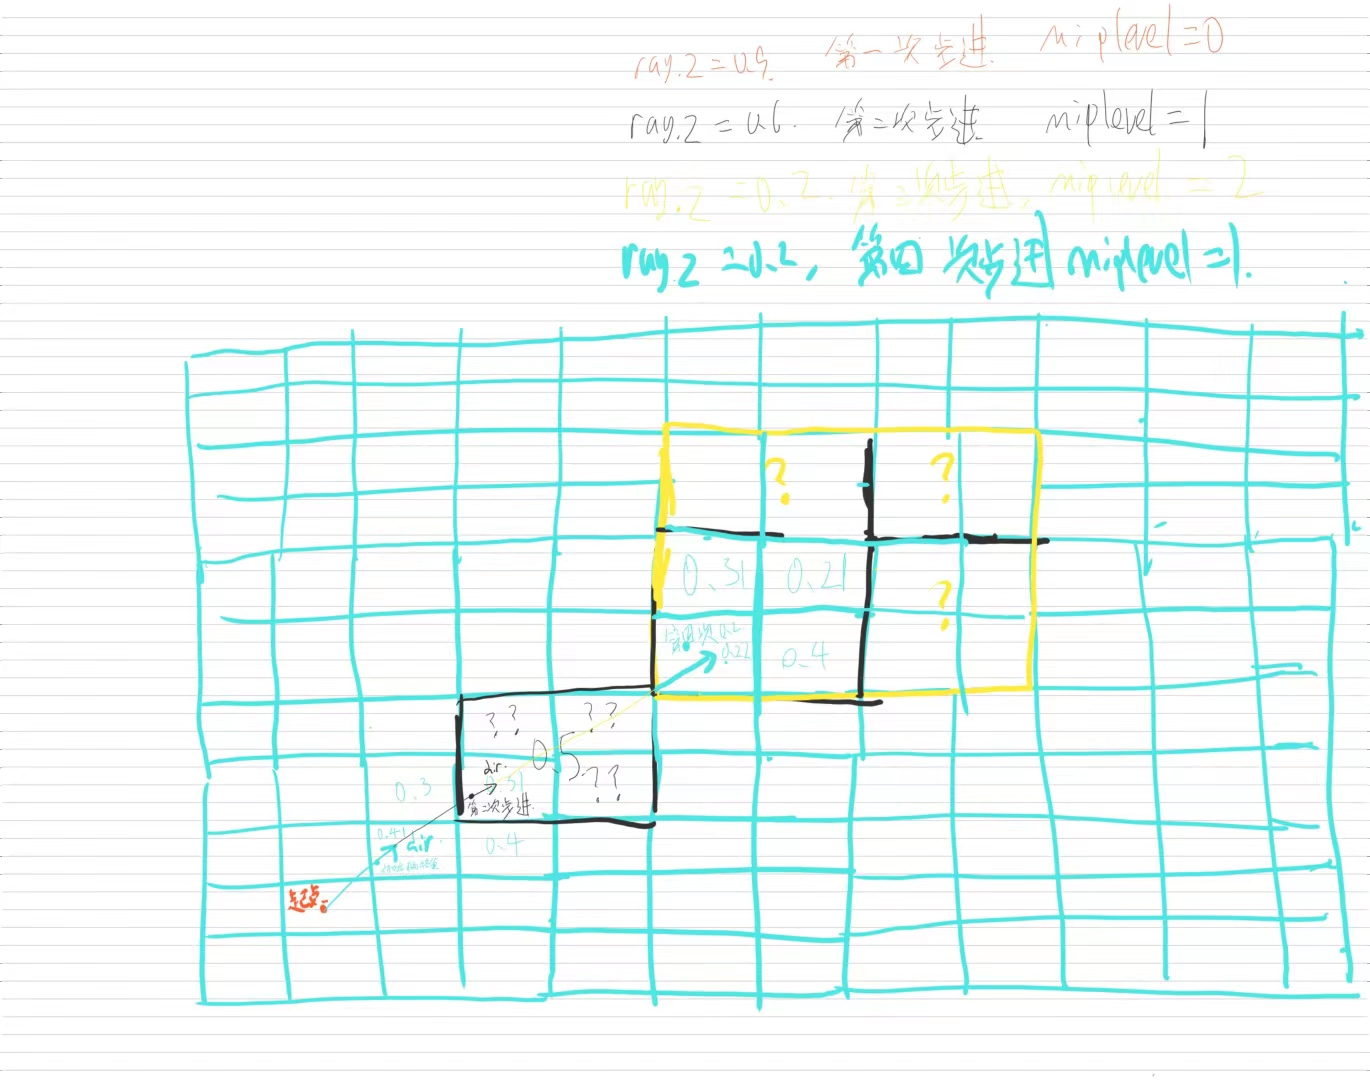 ray.z=0.9. 第一次步进. miplevel=0
ray.z=0.6. 第二次步进 miplevel=1
ray.z=0.2. 第三次步进, miplevel=2
ray.z=0.2, 第四次步进 miplevel=1.
? ?
0.31 0.21 ?
第四次0.2
0.22 0.4
?? ??
0.5
dir.
0.3 0.31 ??
第二次步进.
0.41 dir. 0.4
起点.